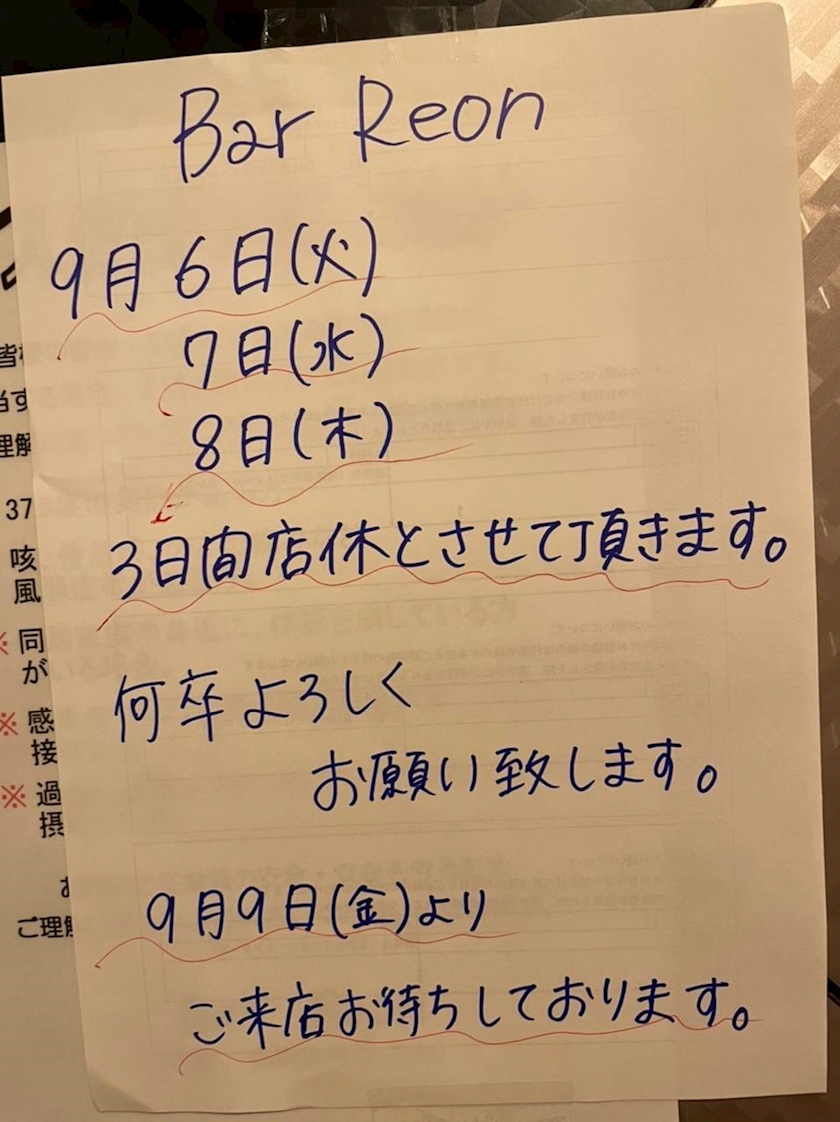 Bar Reon
9月6日(火)
7日(水)
8日(木)
3日間店休とさせて頂きます。
何卒よろしく
お願い致します。
9月9日(金)より
ご来店お待ちしております。
37
咳
風
※ 同
が
※ 感
接
※ 過
摂
ご理解